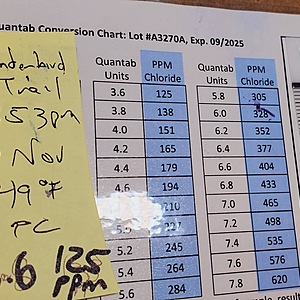 Quantab Conversion Chart: Lot #A3270A, Exp. 09/2025
Trail
53pm
Nov
49°F
PC
.6 125
ppm
Quantab Units PPM Chloride Quantab Units PPM Chloride
3.6 125 5.8 305
3.8 138 6.0 328
4.0 151 6.2 352
4.2 165 6.4 377
4.4 179 6.6 404
4.6 194 6.8 433
210 7.0 465
227 7.2 498
5.2 245 7.4 535
5.4 264 7.6 576
5.6 284 7.8 620